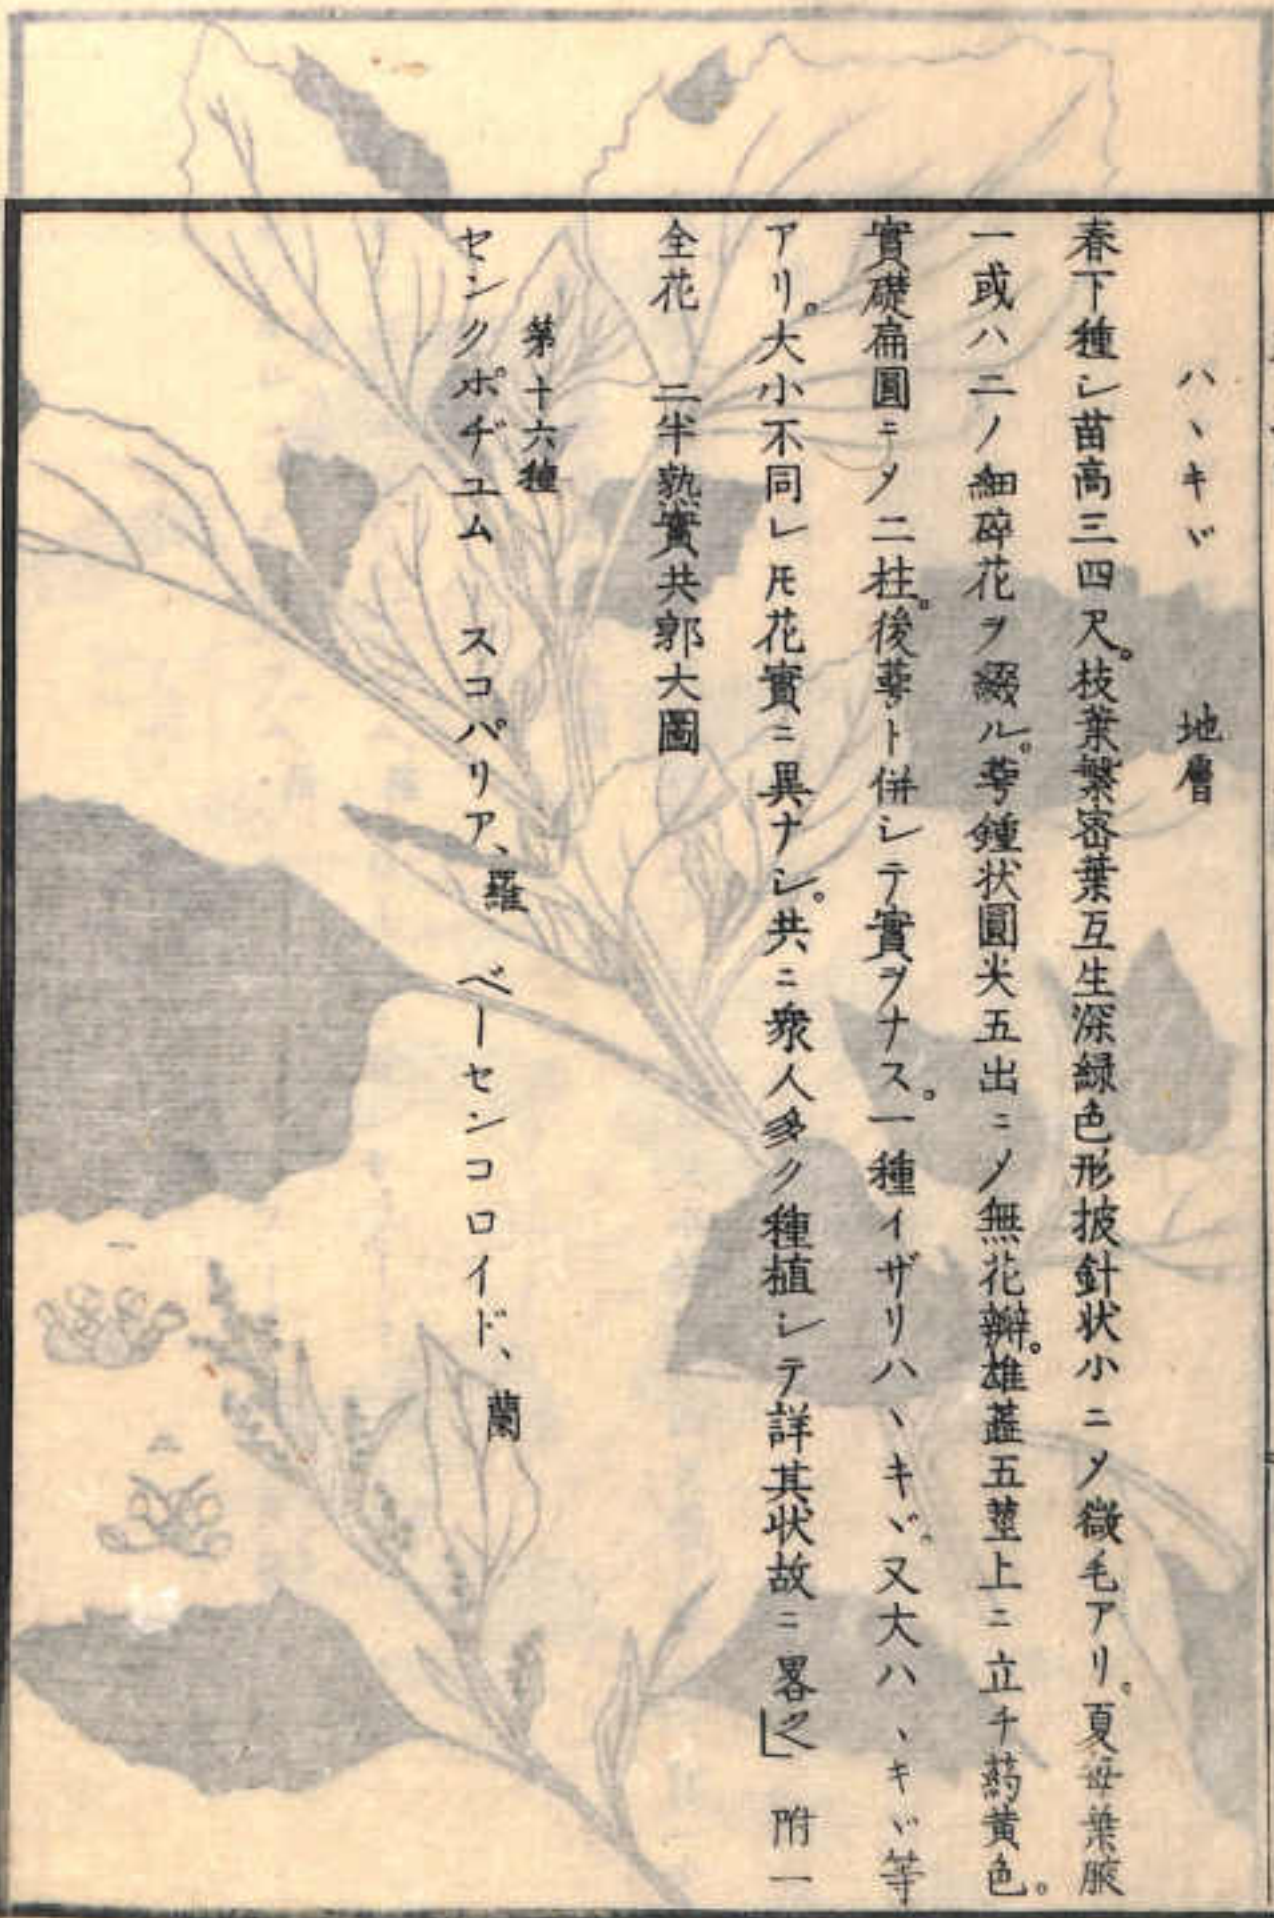 ハヽキヾ　地膚
春下種シ苗高三四尺。枝葉繁密葉互生深緑色形披針状小ニメ微毛アリ。夏毎葉腋
一或ハ二ノ細碎花ヲ綴ル。萼鍾状圓尖五出ニメ無花瓣。雄蕋五莖上ニ立チ葯黄色。
實礎扁圓ニメ二柱。後萼ト併シテ實ヲナス。一種イザリハヽキヾ。又大ハヽキヾ等
アリ。大小不同レ𪜈花實ニ異ナシ。共ニ衆人多ク種植シテ詳其状故ニ畧之」　附一
全花　二半熟實共郭大圖
第十六種
センクポヂユム　スコパリア、羅　ベーセンコロイド、蘭